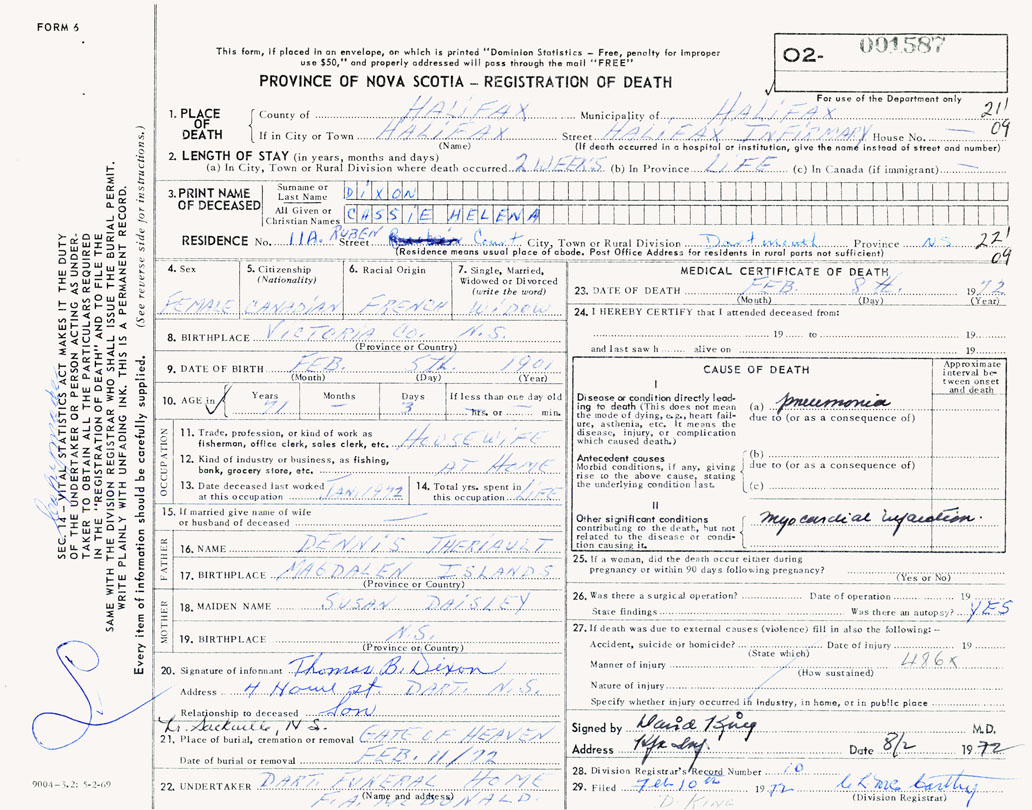 FORM 6
This form, if placed in an envelope, on which is printed "Dominion Statistics – Free, penalty for improper
use $50," and properly addressed will pass through the mail "FREE"
PROVINCE OF NOVA SCOTIA – REGISTRATION OF DEATH
O2- 001587
For use of the Department only
1. PLACE OF DEATH
County of HALIFAX Municipality of HALIFAX 21'
If in City or Town HALIFAX Street HALIFAX INFIRMARY House No. — 09
(Name) (If death occurred in a hospital or institution, give the name instead of street and number)
2. LENGTH OF STAY (in years, months and days)
(a) In City, Town or Rural Division where death occurred 2 WEEKS (b) In Province LIFE (c) In Canada (if immigrant) —
3. PRINT NAME OF DECEASED
Surname or Last Name DIXON
All Given or Christian Names CASSIE HELENA
RESIDENCE No. 11A. RUBEN Street Court City, Town or Rural Division Dartmouth Province NS 22'
(Residence means usual place of abode. Post Office Address for residents in rural parts not sufficient) 09
4. Sex
FEMALE
5. Citizenship
(Nationality)
CANADIAN
6. Racial Origin
FRENCH
7. Single, Married,
Widowed or Divorced
(write the word)
WIDOW
8. BIRTHPLACE VICTORIA CO. N.S.
(Province or Country)
9. DATE OF BIRTH FEB. 5th. 1901
(Month) (Day) (Year)
10. AGE in
Years Months Days If less than one day old
71 — 3 — hrs. or — min.
OCCUPATION
11. Trade, profession, or kind of work as
fisherman, office clerk, sales clerk, etc. HOUSEWIFE
12. Kind of industry or business, as fishing,
bank, grocery store, etc. AT HOME
13. Date deceased last worked
at this occupation JAN. 1972
14. Total yrs. spent in
this occupation LIFE
15. If married give name of wife
or husband of deceased —
FATHER
16. NAME DENNIS THERIAULT
17. BIRTHPLACE MAGDALEN ISLANDS
(Province or Country)
MOTHER
18. MAIDEN NAME SUSAN DAISLEY
19. BIRTHPLACE N.S.
(Province or Country)
20. Signature of informant Thomas B. Dixon
Address 4 Home st DART. N.S.
Relationship to deceased Son
Lr. Sackville, N.S.
21. Place of burial, cremation or removal GATE OF HEAVEN
Date of burial or removal FEB. 11/72
22. UNDERTAKER DART. FUNERAL HOME
(Name and address)
MEDICAL CERTIFICATE OF DEATH
23. DATE OF DEATH FEB. 8th. 1972
(Month) (Day) (Year)
24. I HEREBY CERTIFY that I attended deceased from:
19 to 19
and last saw h alive on 19
CAUSE OF DEATH
Approximate
interval be-
tween onset
and death
I
Disease or condition directly lead-
ing to death (This does not mean
the mode of dying, e.g., heart fail-
ure, asthenia, etc. It means the
disease, injury, or complication
which caused death.)
(a) pneumonia
due to (or as a consequence of)
Antecedent causes
Morbid conditions, if any, giving
rise to the above cause, stating
the underlying condition last.
(b)
due to (or as a consequence of)
(c)
II
Other significant conditions
contributing to the death, but not
related to the disease or condi-
tion causing it.
myocardial infarction.
25. If a woman, did the death occur either during
pregnancy or within 90 days following pregnancy?
(Yes or No)
26. Was there a surgical operation? Date of operation 19
State findings Was there an autopsy? YES
27. If death was due to external causes (violence) fill in also the following:–
Accident, suicide or homicide? Date of injury 19
(State which) 486X
Manner of injury
(How sustained)
Nature of injury
Specify whether injury occurred in industry, in home, or in public place
Signed by David King M.D.
Address Date 8/2 1972
28. Division Registrar's Record Number 10
29. Filed Feb 10th 1972
(Division Registrar)
D KING
SEC. 14 – VITAL STATISTICS ACT MAKES IT THE DUTY
OF THE UNDERTAKER OR PERSON ACTING AS UNDER-
TAKER TO OBTAIN ALL THE PARTICULARS REQUIRED
IN THE "REGISTRATION OF DEATH" AND TO FILE THE
SAME WITH THE DIVISION REGISTRAR WHO SHALL ISSUE THE BURIAL PERMIT.
WRITE PLAINLY WITH UNFADING INK. THIS IS A PERMANENT RECORD.
Every item of information should be carefully supplied. (See reverse side for instructions.)
9004-3.2: 5-2-69